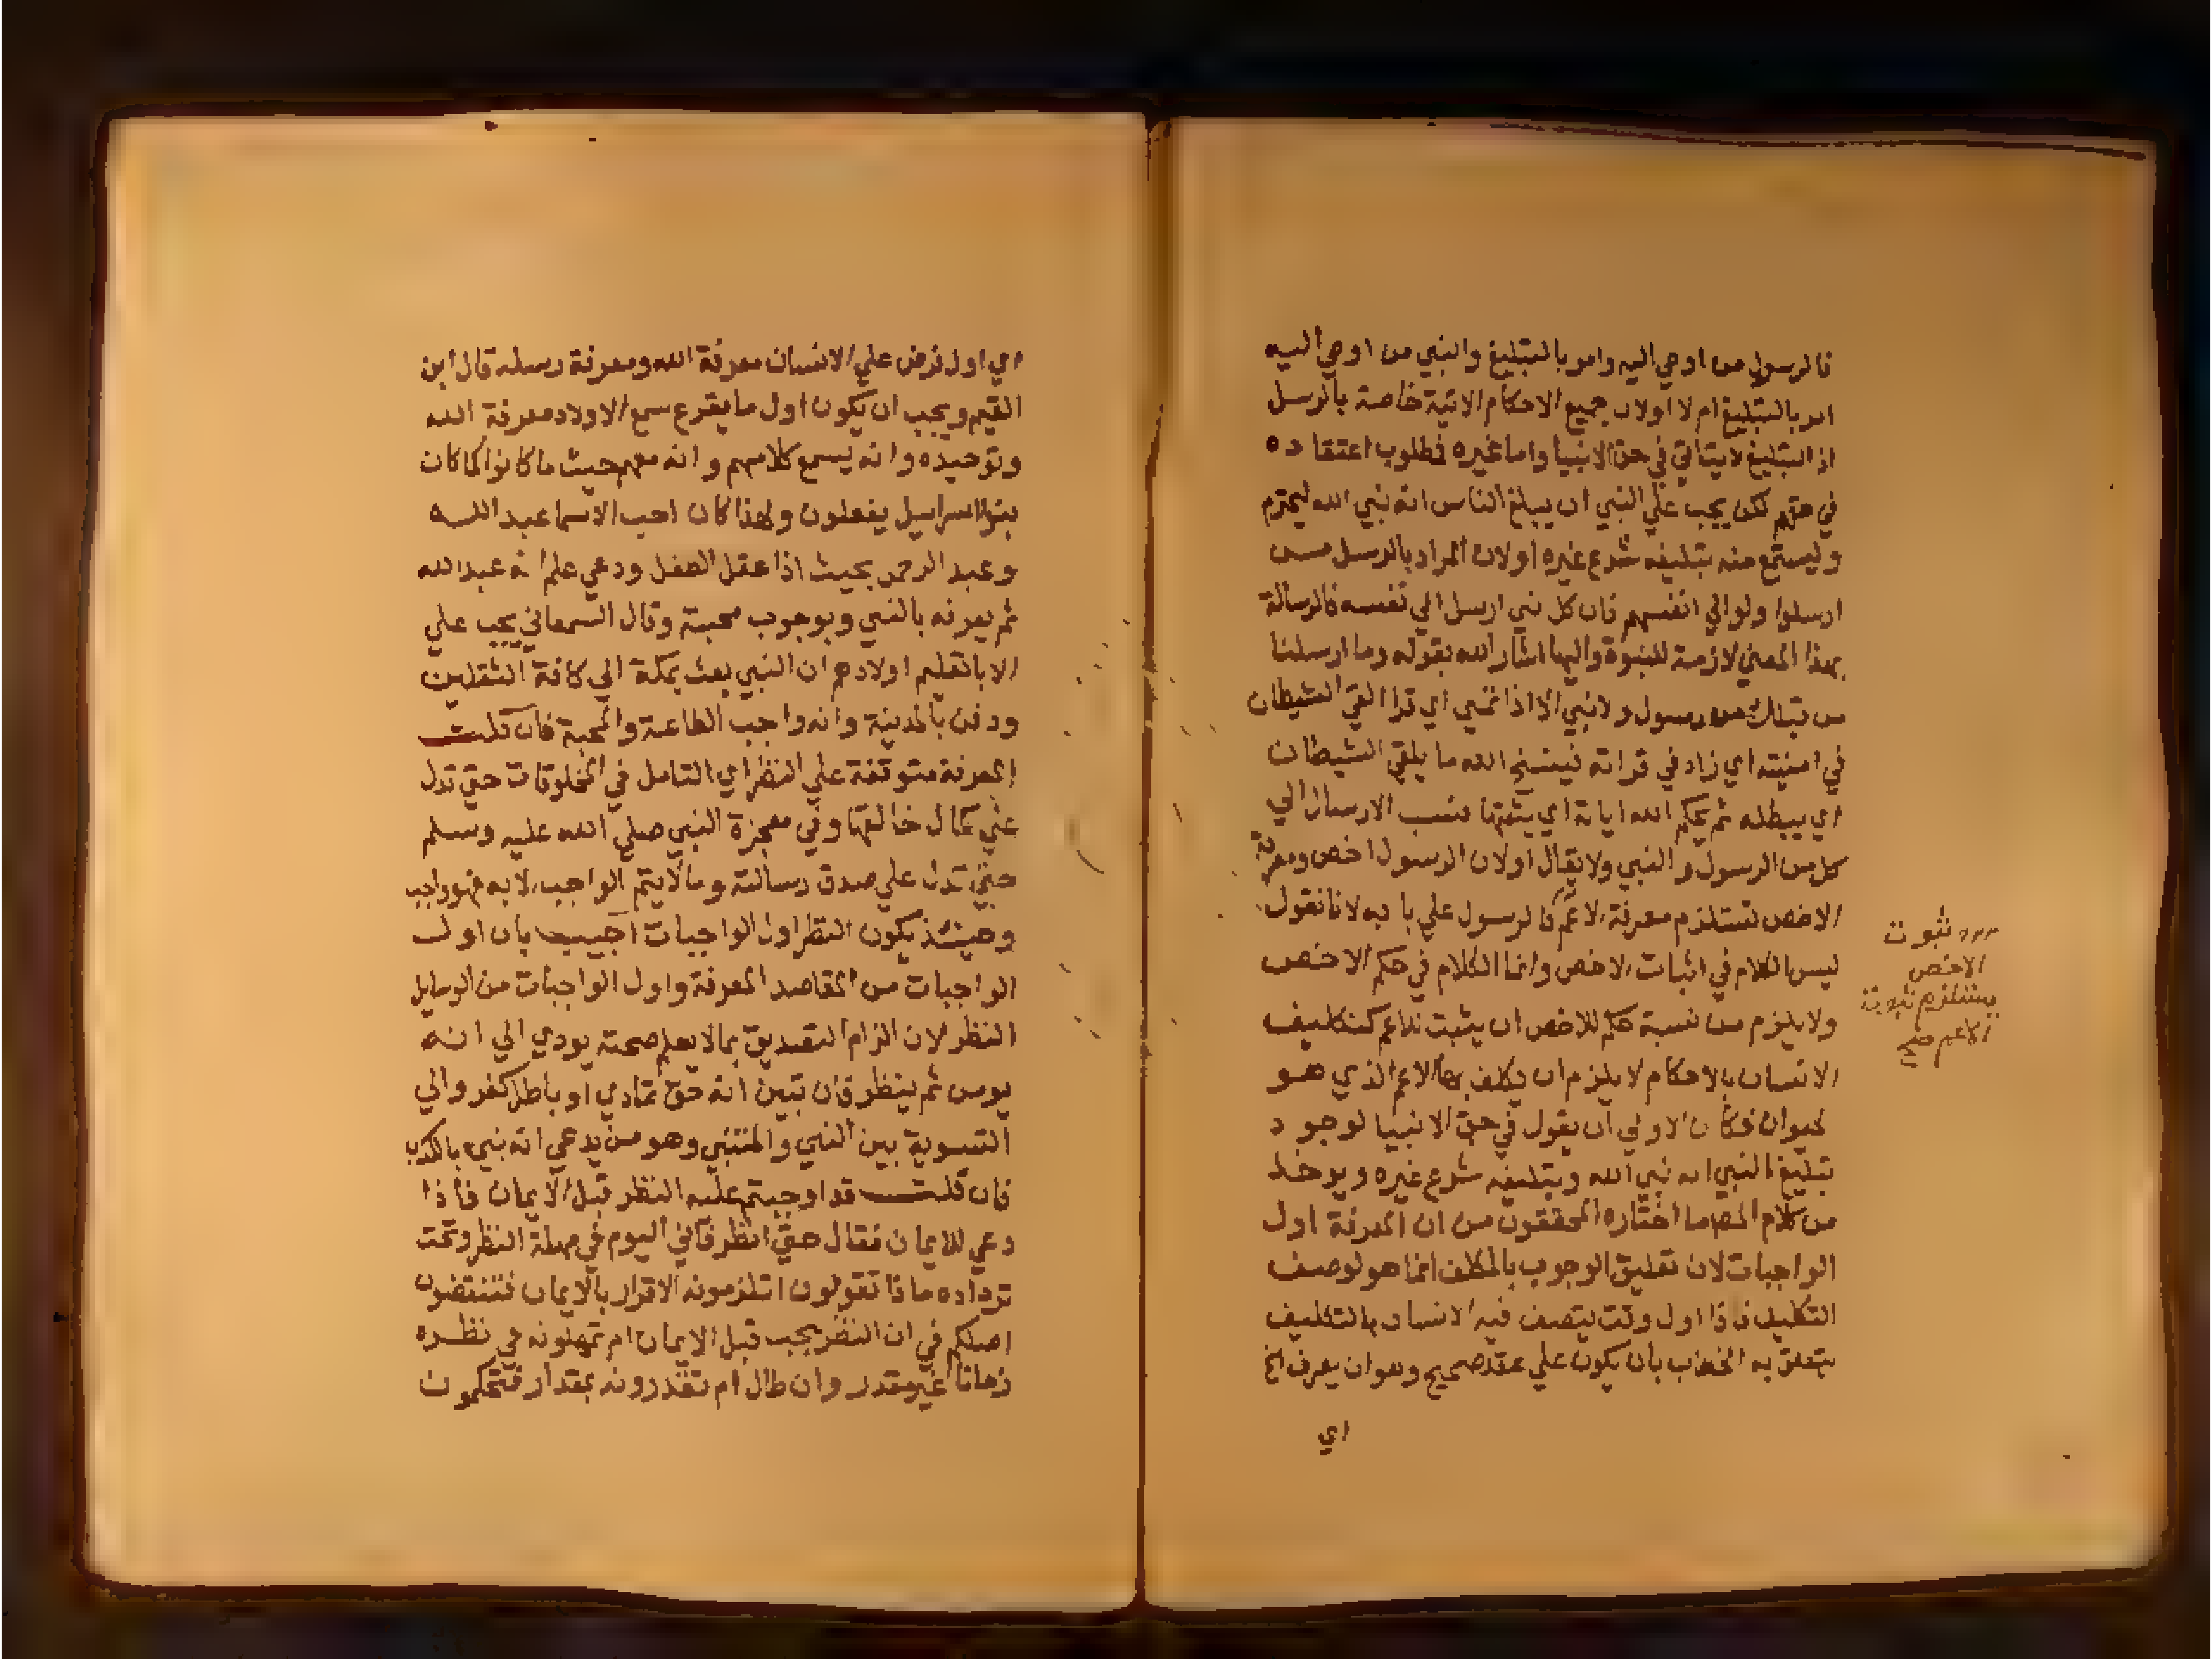 فالرسول من اوحي اليه وامر بالتبليغ والنبي من اوحي اليه
امر بالتبليغ ام لا اولان جميع الاحكام الاتية خاصة بالرسل
اذ التبليغ لايتاتي في حق الانبيا واما غيره فطلوب اعتقاده
في حقهم لكن يجب علي النبي ان يبلغ الناس انه نبي الله ليحترم
وليستمع منه بتليغه شرع غيره اولان المراد بالرسل مـن
ارسلوا ولوالي انفسهم فان كل نبي ارسل الي نفسه فالرسالة
بهذا المعني لازمة للنبوة واليها اشار الله بقوله وما ارسلنا
من قبلك من رسول ولا نبي الا اذا تمني اي قرا القي الشيطان
في امنيته اي زاد في قراته فينسخ الله ما يلقي الشيطان
اي يبطله ثم يحكم الله اياته اي يثبتها فنسب الارسال الي
كل من الرسول والنبي ولايقال اولان الرسول اخص ومعرفة
الاخص تستلزم معرفة الاعم فالرسول علي بابه لانا نقول
ليس الكلام في اثبات الاخص وانما الكلام في حكم الاخص
ولايلزم من نسبة حكم للاخص ان يثبت للاعم كتكليف
الانسان بالاحكام لايلزم ان يكلف بها الاعم الذي هـو
لحيوان فكان الاولي ان يقول في حق الانبيا لوجود
تبليغ النبي انه نبي الله وبتليغه شرع غيره ويوخذ
من كلام المصـ ما اختاره المحققون من ان المعرفة اول
الواجبات لان تعليق الوجوب بالمكلف انما هو لوصف
التكليف فاذا اول وقت يتصف فيه الانسان بالتكليف
يتعلق به الخطاب بان يكون علي عقد صحيح وهو ان يعرف الخ
اي
ثبوت
الاخص
يستلزم ثبوت
الاعم صح
اي اول فرض علي الانسان معرفة الله ومعرفة رسله قال ابن
القيم ويجب ان يكون اول ما يقرع سمع الاولاد معرفة الله
وتوحيده وانه يسمع كلامهم وانه معهم حيث ما كانوا كما كان
بنوا اسراييل يفعلون ولهذا كان احب الاسما عبد اللـه
وعبد الرحمن بحيث اذا عقل الطفل ودعي علم انه عبد الله
ثم يعرفه بالنبي وبوجوب محبته وقال السمعاني يجب علي
الابا تعليم اولادهم ان النبي بعث بمكة الي كافة الثقلين
ودفن بالمدينة وانه واجب الطاعة والمحبة فان قلت
المعرفة متوقفة علي النظر اي التامل في المخلوقات حتي تدل
علي كمال خالقها وفي معجزة النبي صلي الله عليه وسلم
حتي تدل علي صدق رسالته وما لايتم الواجب الا به فهو واجب
وحينئذ يكون النظر اول الواجبات اجيب بان اول
الواجبات من المقاصد المعرفة واول الواجبات من الوسايل
النظر لان الزام التصديق بما لا يعلم صحته يودي الي انـه
يومن ثم ينظر فان تبين انه حق تمادي او باطل كفر والي
التسوية بين النبي والمتنبي وهو من يدعي انه نبي بالكذب
فان قلت قد اوجبتم عليه النظر قبل الايمان فاذا
دعي للايمان فقال حتي انظر فاني اليوم في مهلة النظر وتحت
ترداده ماذا تقولون اتلزمونه الاقرار بالايمان فتنقضون
اصلكم في ان النظر يجب قبل الايمان ام تمهلونه في نظـره
زمانا غير مقدر وان طال ام تقدرونه بمقدار فتحكمون